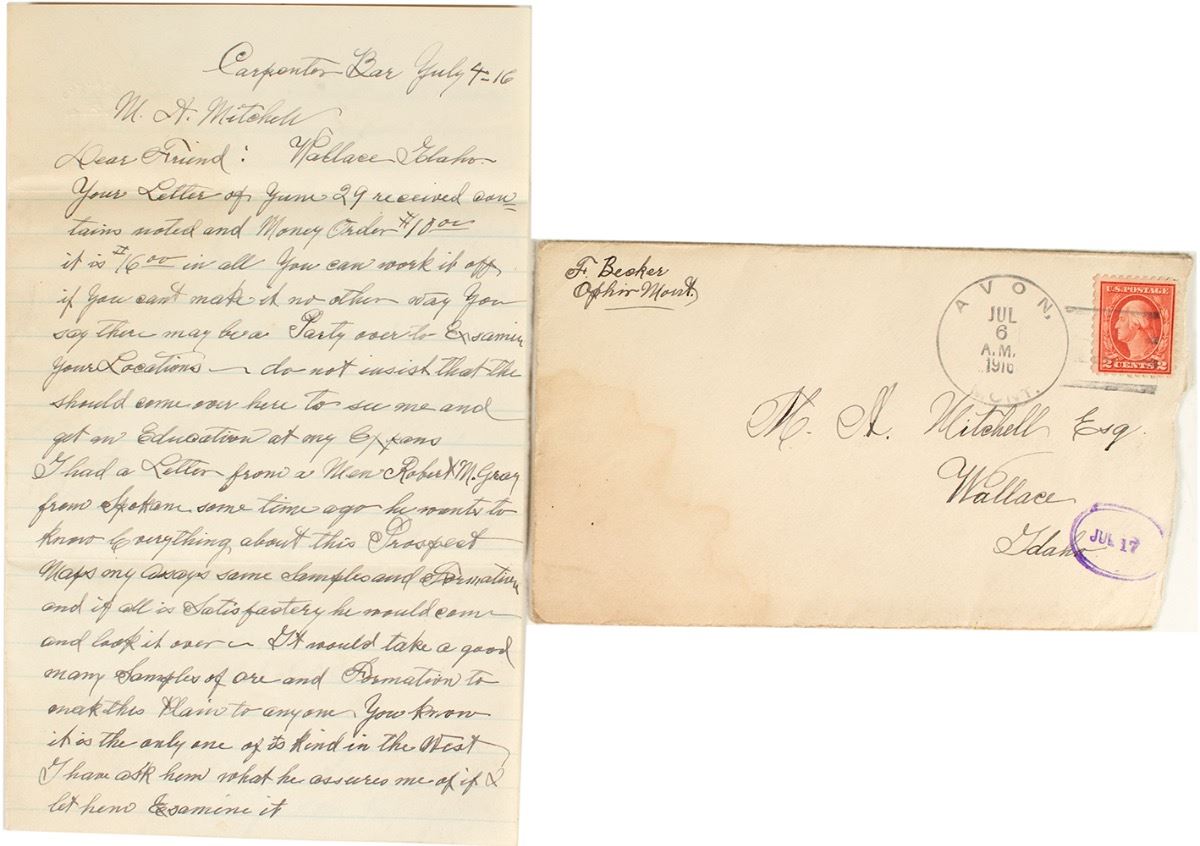 Carpenter Bar July 4-16
M. A. Mitchell
Dear Friend: Wallace Idaho
Your Letter of June 29 received con-
tains noted and Money Order $10 00
it is $16 00 in all You can work it off
if You cant make it no other way You
say there may be a Party over to Examin
Your Locations — do not insist that the
should come over here to see me and
get an Education at my
I had a Letter from a Men Robert M. Gray
from Spokane some time ago he wants to
know Everything about this Prospect
Maps my assays same Samples and Formation
and if all is Satisfactery he would come
and look it over — It would take a good
many Samples of ore and Formation to
make this Plain to anyone You know
it is the only one of its kind in the West
I have ask hem what he assures me of if I
let hem Examine it
F. Becker
Ophir Mont.
AVON,
JUL
6
A.M.
1916
MONT.
U.S. POSTAGE
2 CENTS 2
M. A. Mitchell Esq.
Wallace
Idaho
JUL 17